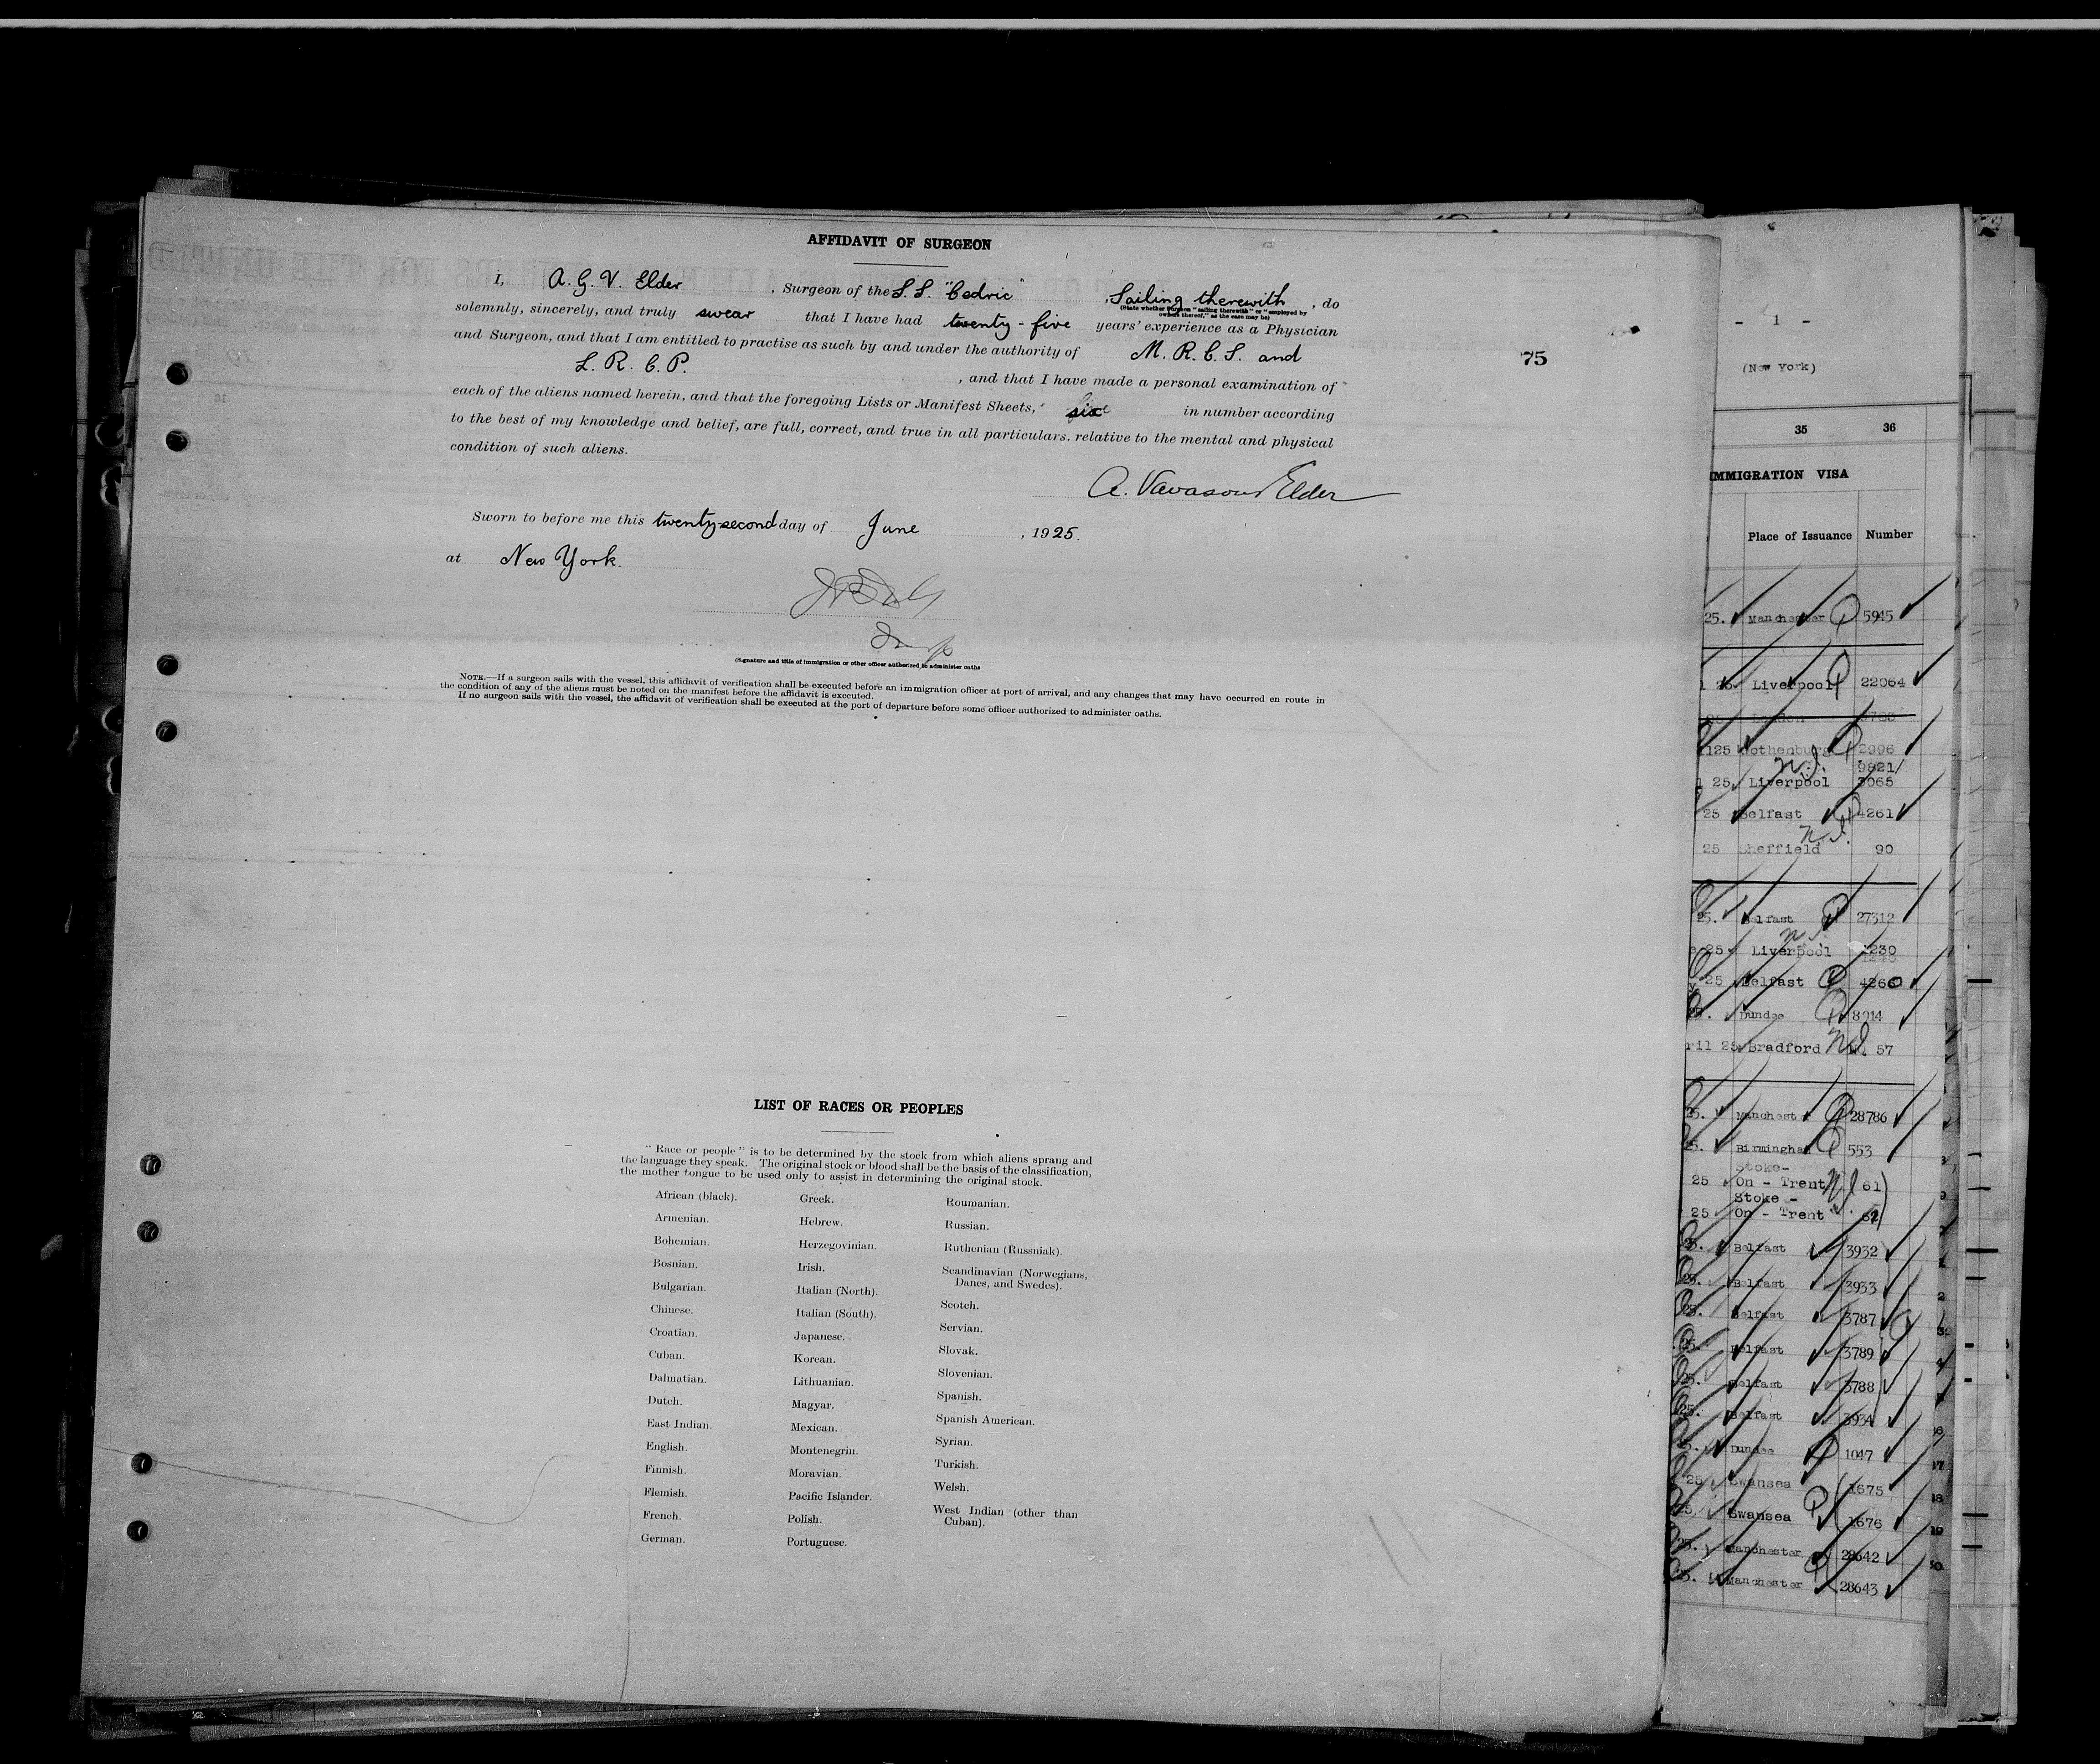 AFFIDAVIT OF SURGEON
I, A. G. V. Elder, Surgeon of the S.S. "Cedric", Sailing therewith, do
(State whether surgeon "sailing therewith" or "employed by
owners thereof," as the case may be)
solemnly, sincerely, and truly swear that I have had twenty-five years' experience as a Physician
and Surgeon, and that I am entitled to practise as such by and under the authority of M. R. C. S. and
L. R. C. P., and that I have made a personal examination of
each of the aliens named herein, and that the foregoing Lists or Manifest Sheets, six in number according
to the best of my knowledge and belief, are full, correct, and true in all particulars, relative to the mental and physical
condition of such aliens.
A. Vavasour Elder
Sworn to before me this twenty-second day of June, 1925.
at New York.
(Signature and title of immigration or other officer authorized to administer oaths
NOTE.—If a surgeon sails with the vessel, this affidavit of verification shall be executed before an immigration officer at port of arrival, and any changes that may have occurred en route in
the condition of any of the aliens must be noted on the manifest before the affidavit is executed.
If no surgeon sails with the vessel, the affidavit of verification shall be executed at the port of departure before some officer authorized to administer oaths.
75
LIST OF RACES OR PEOPLES
"Race or people" is to be determined by the stock from which aliens sprang and
the language they speak. The original stock or blood shall be the basis of the classification,
the mother tongue to be used only to assist in determining the original stock.
African (black).
Armenian.
Bohemian.
Bosnian.
Bulgarian.
Chinese.
Croatian.
Cuban.
Dalmatian.
Dutch.
East Indian.
English.
Finnish.
Flemish.
French.
German.
Greek.
Hebrew.
Herzegovinian.
Irish.
Italian (North).
Italian (South).
Japanese.
Korean.
Lithuanian.
Magyar.
Mexican.
Montenegrin.
Moravian.
Pacific Islander.
Polish.
Portuguese.
Roumanian.
Russian.
Ruthenian (Russniak).
Scandinavian (Norwegians,
Danes, and Swedes).
Scotch.
Servian.
Slovak.
Slovenian.
Spanish.
Spanish American.
Syrian.
Turkish.
Welsh.
West Indian (other than
Cuban).
- 1 -
(New York)
35 36
IMMIGRATION VISA
Place of Issuance Number
25. Manchester 5945
25. Liverpool 22064
London
125 Gothenburg 2996
9821/
25. Liverpool 3065
25 Belfast 4261
25 Sheffield 90
25. Belfast 27312
25 Liverpool 230
25 Belfast 4266
Dundee 8914
ril 25 Bradford 57
25. Manchest 28786
25. Birmingham 553
Stoke-
25 On - Trent 61
Stoke -
25 On - Trent 62
25. Belfast 3932
25. Belfast 3933
25. Belfast 3787
25. Belfast 3789
25. Belfast 3788
25. Belfast 3934
25. Dundee 1047
25 Swansea 1675
25. Swansea 1676
25. Manchester 28642
25. Manchester 28643